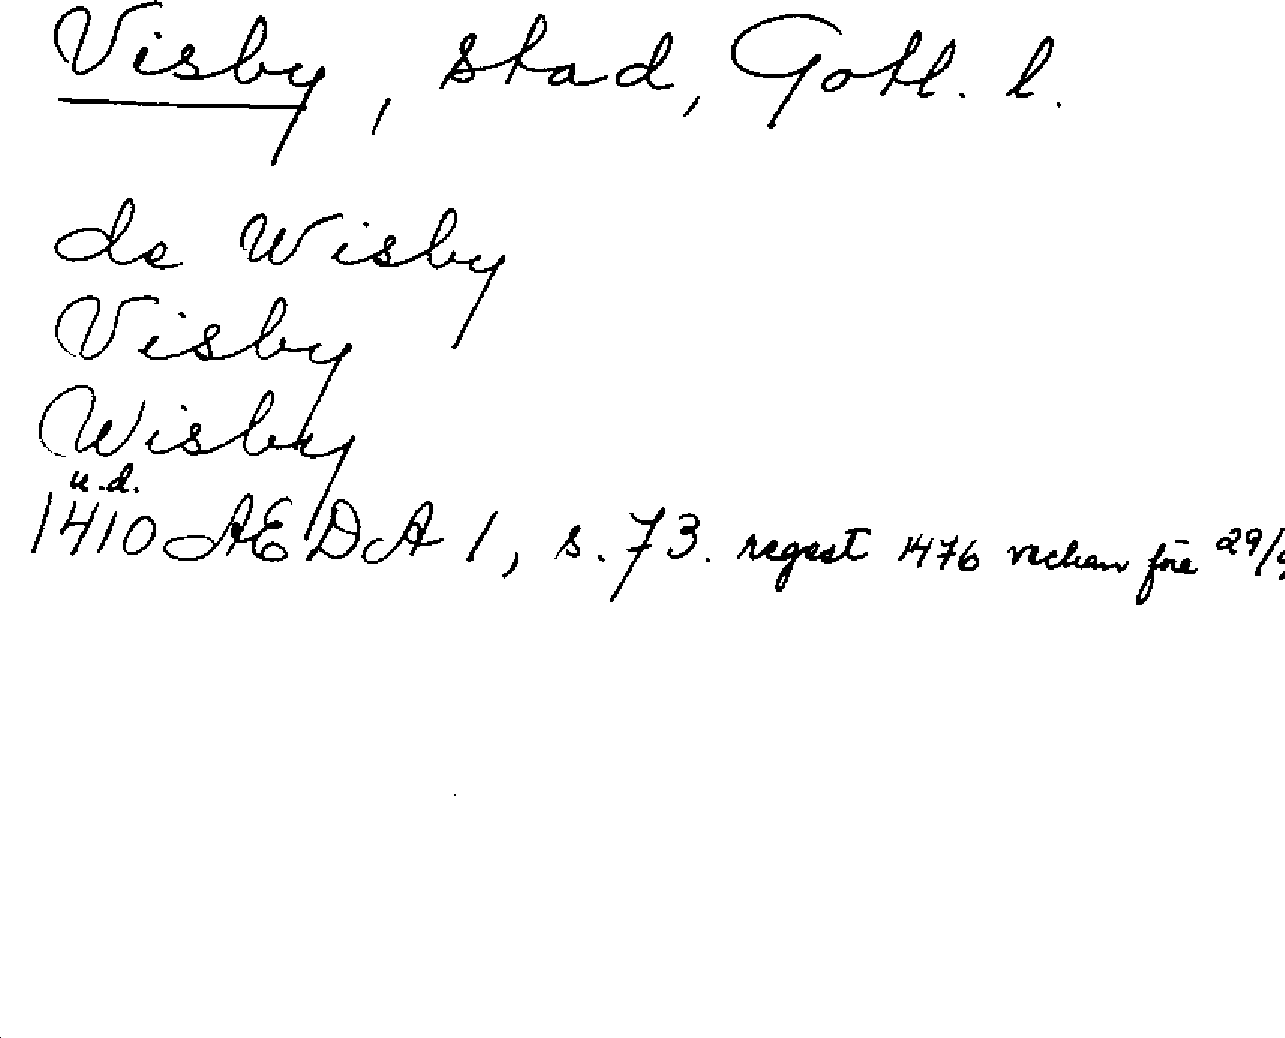 Visby, stad, Gotl. l.
de Wisby
Visby
Wisby
u.d.
1410 AEDA 1, s. 73. regest 1476 veckan före 29/9